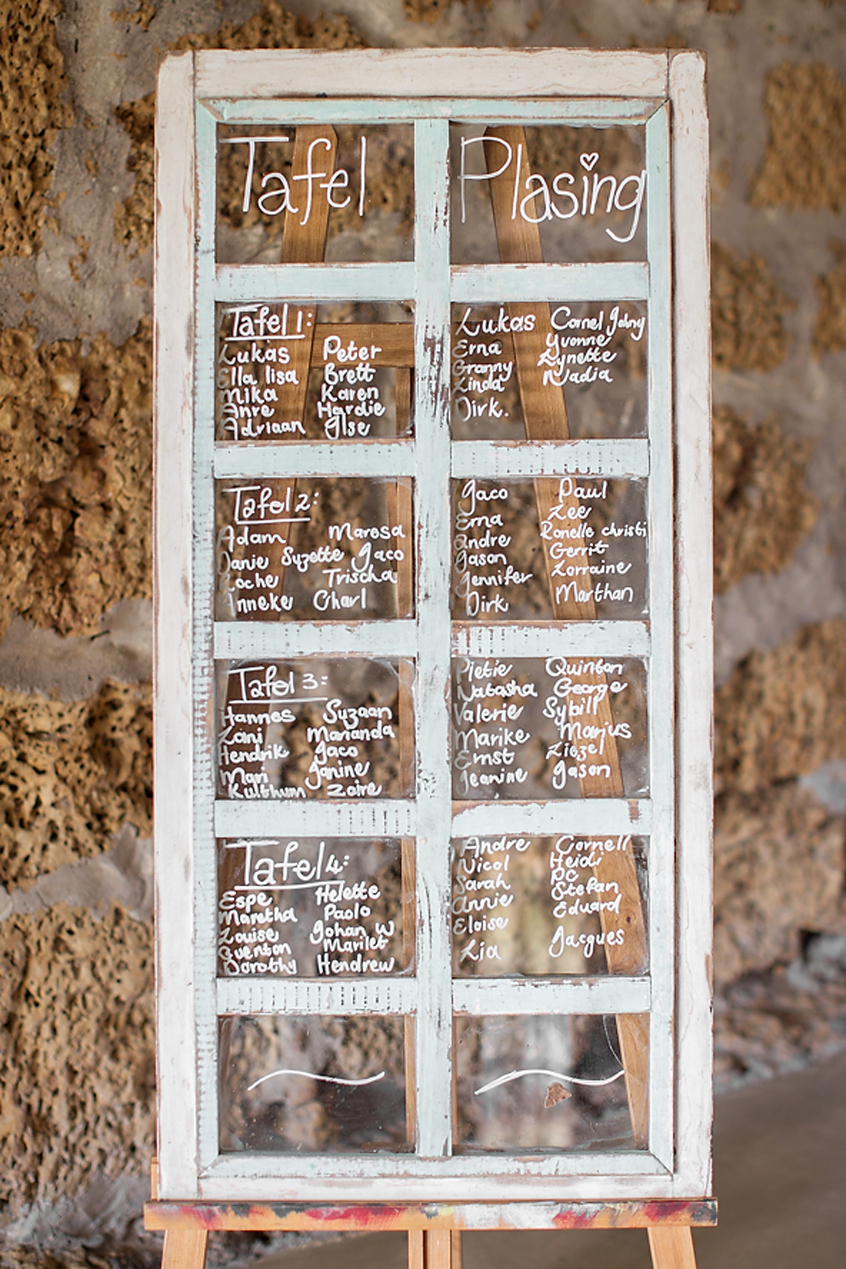 Tafel Plasing
Tafel 1:
Lukas Peter
Ella lisa Brett
Mika Karen
Anre Hardie
Adriaan Ilse
Lukas Cornel Johny
Erna Yvonne
Granny Lynette
Linda Nadia
Dirk.
Tafel 2:
Adam Maresa
Danie Suzette Jaco
Loche Trischa
Anneke Charl
Jaco Paul
Erna Lee
Andre Ronelle christi
Jason Gerrit
Jennifer Lorraine
Dirk Marthan
Tafel 3:
Hannes Suzaan
Zani Marianda
Hendrik Jaco
Mari Janine
Kulthum Zoire
Pietie Quinton
Natasha George
Valerie Sybill
Marike Marius
Ernst Liezel
Jeanine Jason
Tafel 4:
Espe Helette
Maretha Paolo
Louise Johan W
Quenton Marilet
Dorothy Hendrew
Andre Cornell
Nicol Heidi
Sarah PC
Annie Stefan
Eloise Eduard
Lia Jacques